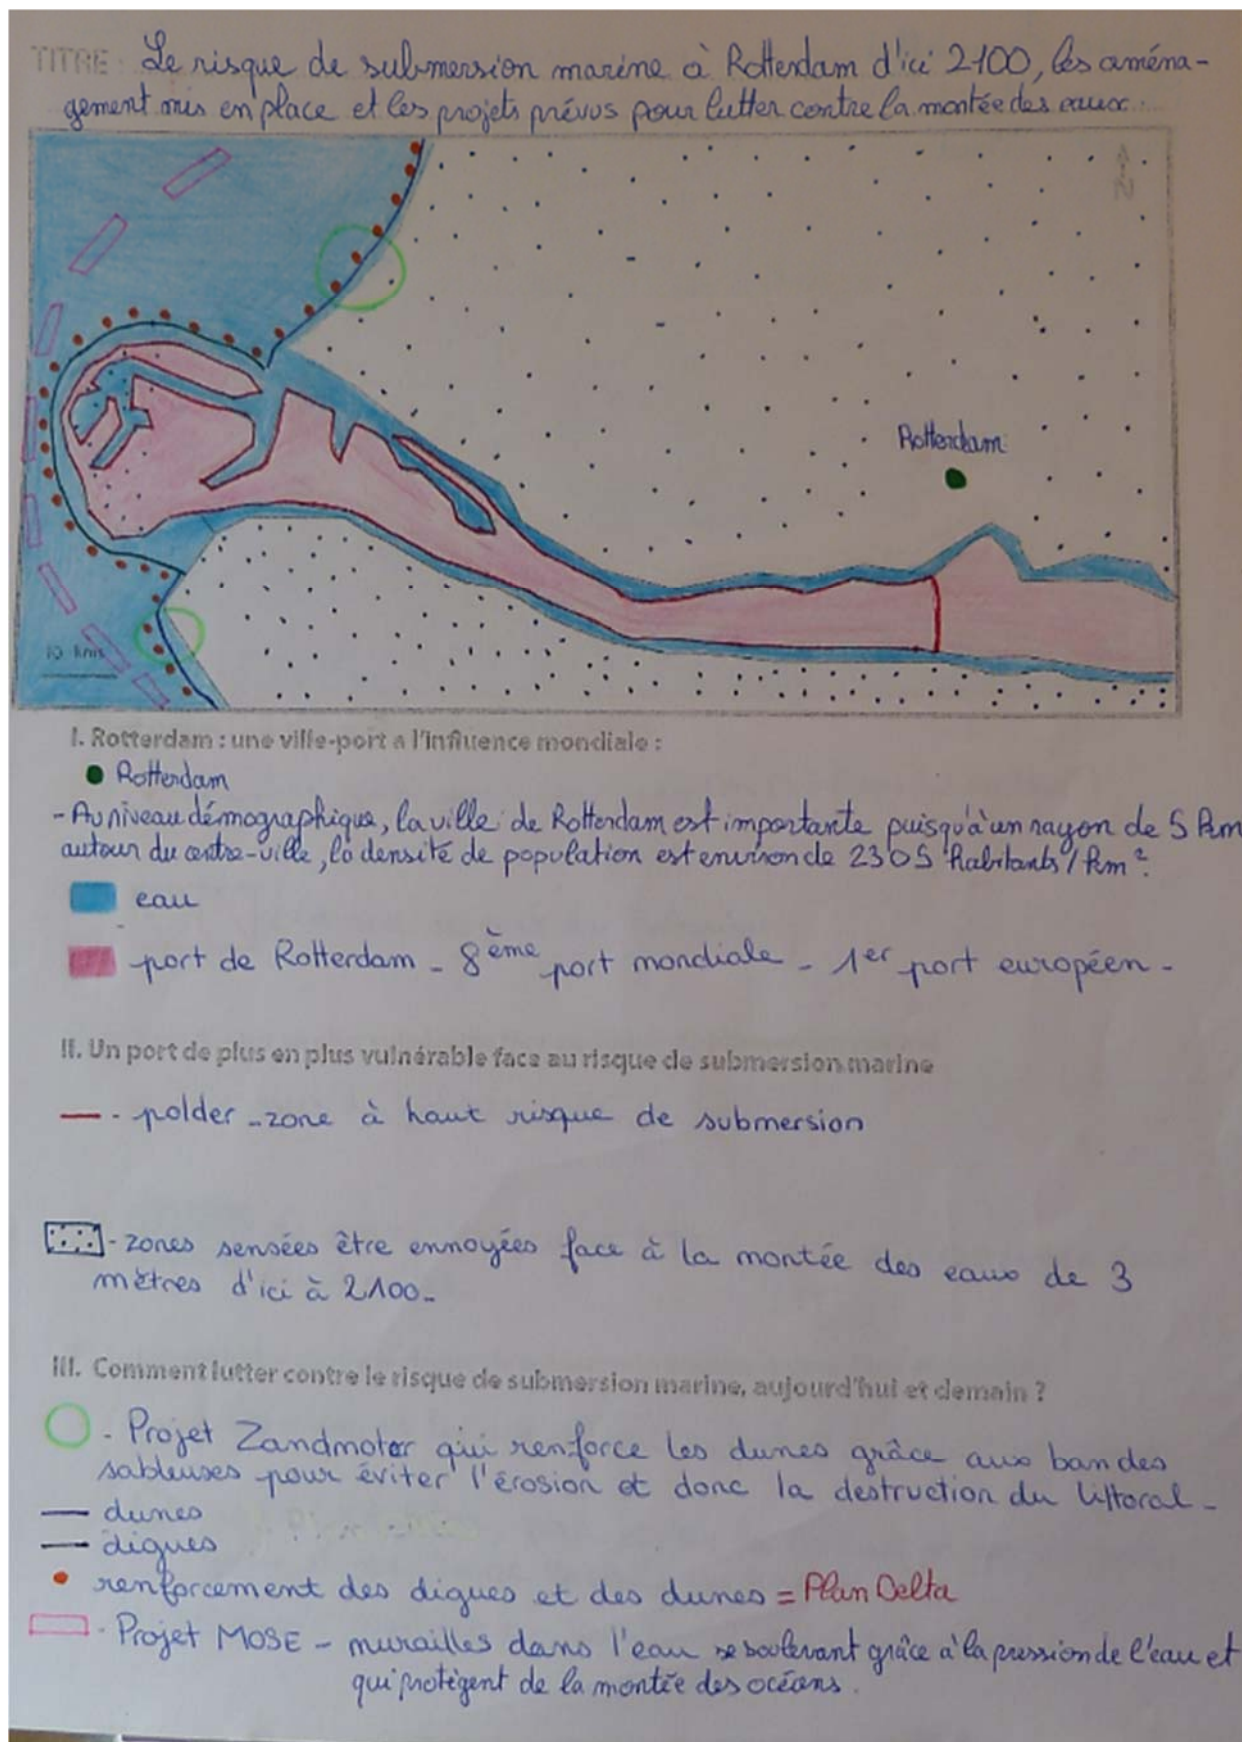 TITRE : Le risque de submersion marine à Rotterdam d'ici 2100, les aména-
gement mis en place et les projets prévus pour lutter contre la montée des eaux.
N
Rotterdam
10 kms
I. Rotterdam : une ville-port a l'influence mondiale :
Rotterdam
- Au niveau démographique, la ville de Rotterdam est importante puisqu'à un rayon de 5 km
autour du centre-ville, la densité de population est environ de 2305 habitants / km².
eau
port de Rotterdam - 8ème port mondiale - 1er port européen -
II. Un port de plus en plus vulnérable face au risque de submersion marine
- polder - zone à haut risque de submersion
- zones sensées être ennoyées face à la montée des eaux de 3
mètres d'ici à 2100 -
III. Comment lutter contre le risque de submersion marine, aujourd'hui et demain ?
- Projet Zandmotor qui renforce les dunes grâce aux bandes
sableuses pour éviter l'érosion et donc la destruction du littoral -
dunes
digues
renforcement des digues et des dunes = Plan Delta
- Projet MOSE - murailles dans l'eau se soulevant grâce à la pression de l'eau et
qui protègent de la montée des océans.